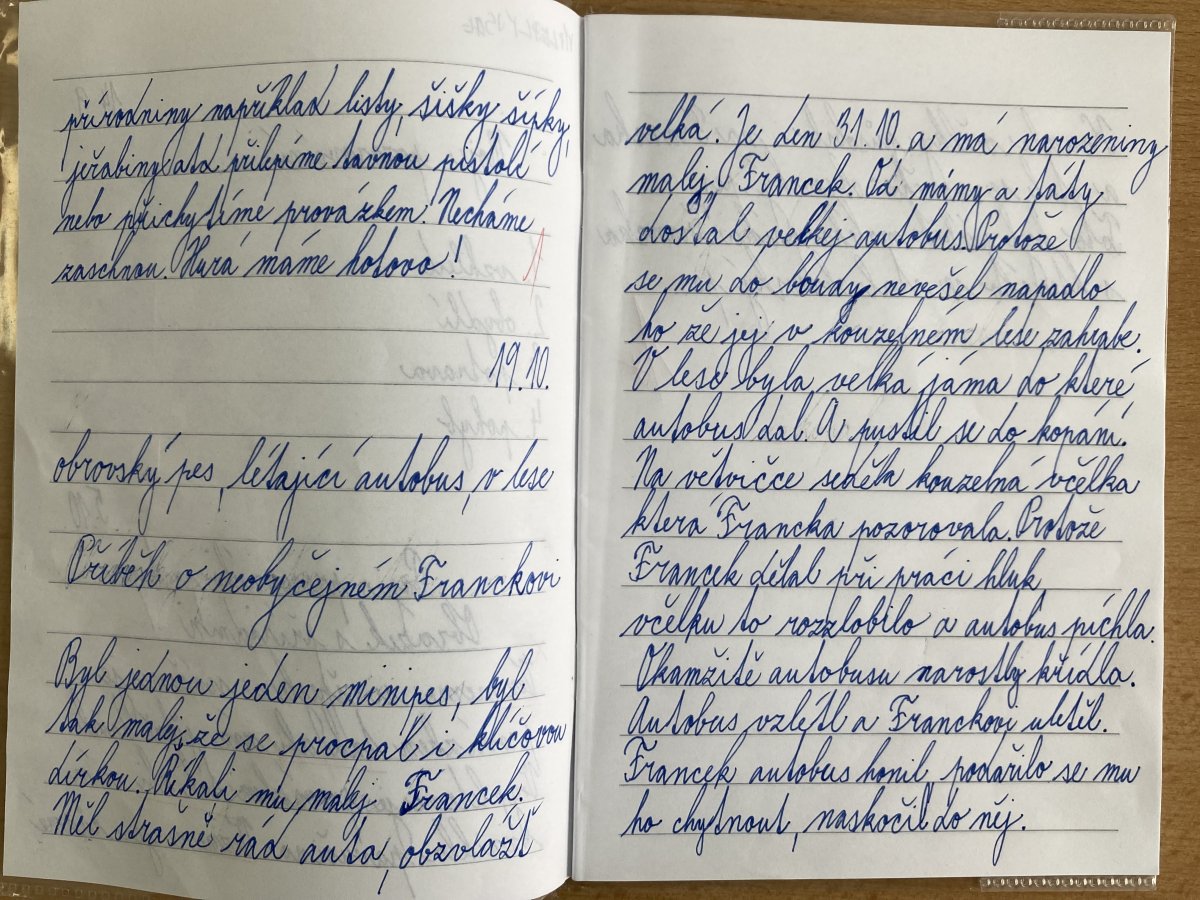 přírodniny například listy, šišky, šípky,
jeřabiny atd přilepíme tavnou pistolí
nebo přichytíme provázkem. Necháme
zaschnou. Hurá máme hotovo!
1
19.10.
obrovský pes, létající autobus, v lese
Příběh o neobyčejném Franckovi
Byl jednou jeden minipes, byl
tak malej, že se procpal i klíčovou
dírkou. Říkali mu malej Francek.
Měl strašně rád auta, obzvlášť
velká. Je den 31.10. a má narozeniny
malej Francek. Od mámy a táty
dostal velkej autobus. Protože
se mu do boudy nevešel napadlo
ho že jej v kouzelném lese zahrabe.
V lese byla velká jáma do které
autobus dal. A pustil se do kopání.
Na větvičce seděla kouzelná včelka
která Francka pozorovala. Protože
Francek dělal při práci hluk
včelku to rozzlobilo a autobus píchla.
Okamžitě autobusu narostly křídla.
Autobus vzlétl a Franckovi uletěl.
Francek autobus honil, podařilo se mu
ho chytnout, naskočil do něj.